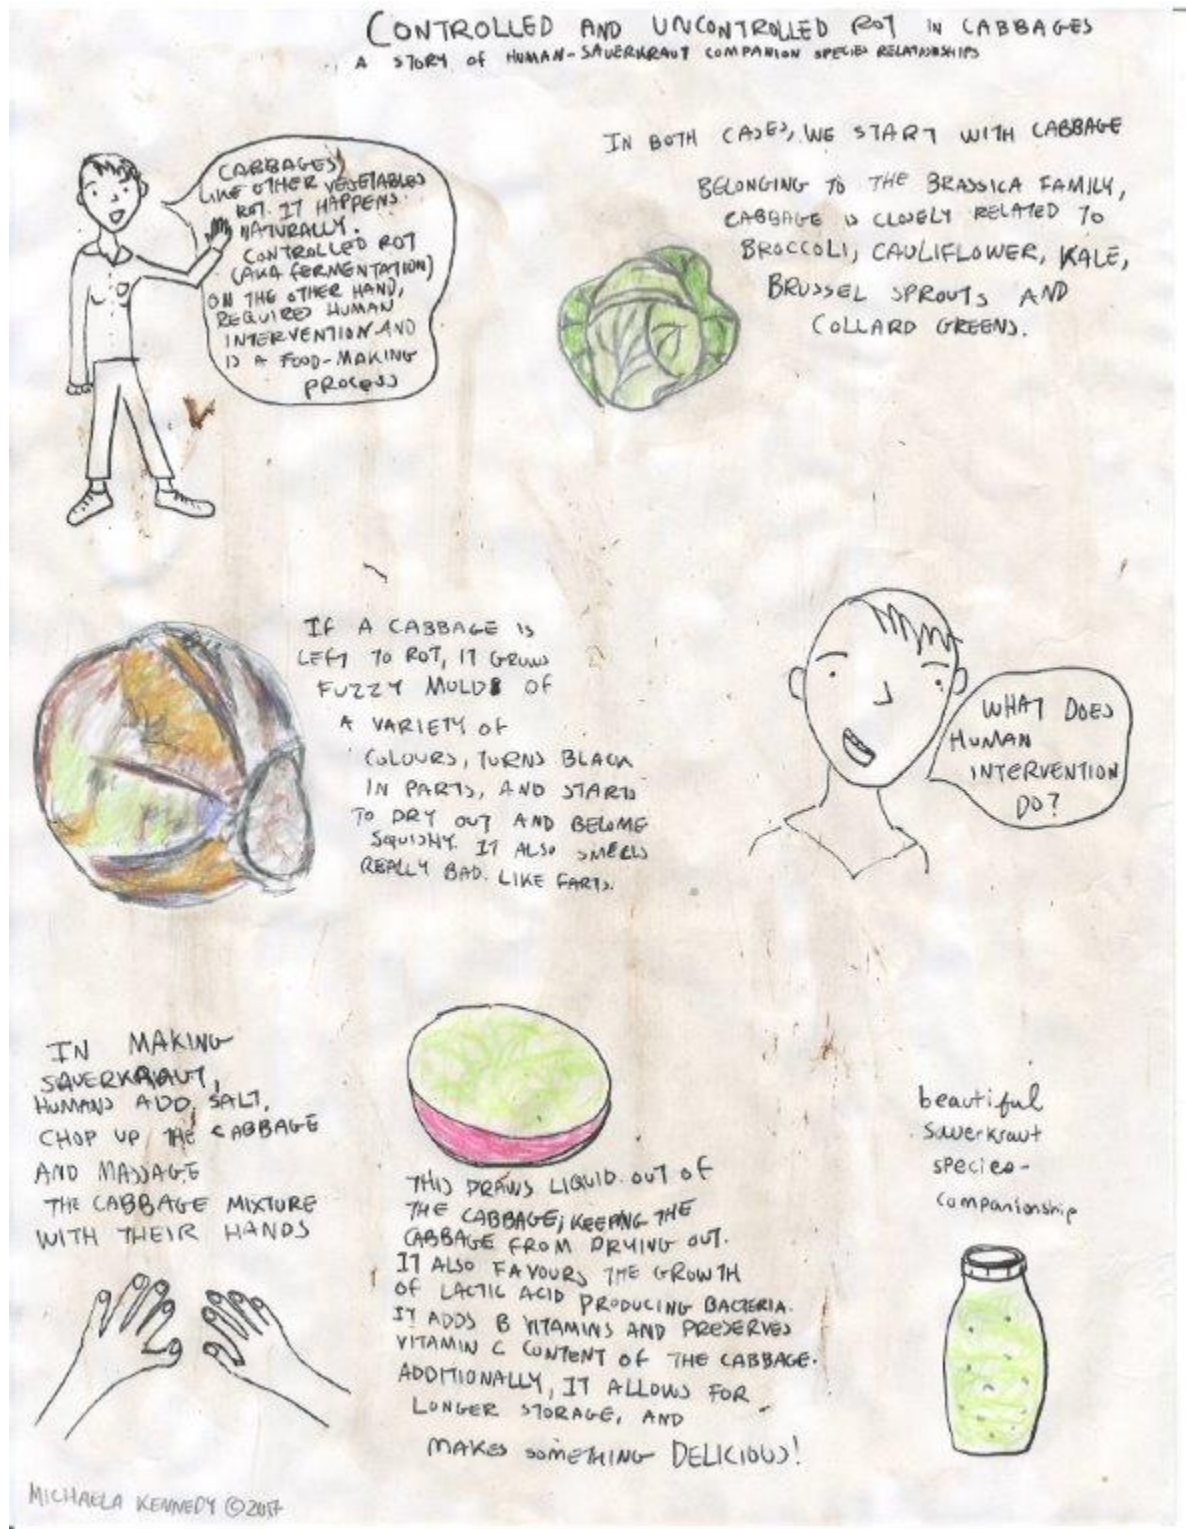 CONTROLLED AND UNCONTROLLED ROT IN CABBAGES
A STORY OF HUMAN-SAUERKRAUT COMPANION SPECIES RELATIONSHIPS
CABBAGES,
LIKE OTHER VEGETABLES
ROT. IT HAPPENS
NATURALLY.
CONTROLLED ROT
(AKA FERMENTATION)
ON THE OTHER HAND,
REQUIRES HUMAN
INTERVENTION AND
IS A FOOD-MAKING
PROCESS
IN BOTH CASES, WE START WITH CABBAGE
BELONGING TO THE BRASSICA FAMILY,
CABBAGE IS CLOSELY RELATED TO
BROCCOLI, CAULIFLOWER, KALE,
BRUSSEL SPROUTS AND
COLLARD GREENS.
IF A CABBAGE IS
LEFT TO ROT, IT GROWS
FUZZY MOLDS OF
A VARIETY OF
COLOURS, TURNS BLACK
IN PARTS, AND STARTS
TO DRY OUT AND BECOME
SQUISHY. IT ALSO SMELLS
REALLY BAD. LIKE FARTS.
WHAT DOES
HUMAN
INTERVENTION
DO?
IN MAKING
SAUERKRAUT,
HUMANS ADD SALT,
CHOP UP THE CABBAGE
AND MASSAGE
THE CABBAGE MIXTURE
WITH THEIR HANDS
THIS DRAWS LIQUID OUT OF
THE CABBAGE, KEEPING THE
CABBAGE FROM DRYING OUT.
IT ALSO FAVOURS THE GROWTH
OF LACTIC ACID PRODUCING BACTERIA.
IT ADDS B VITAMINS AND PRESERVES
VITAMIN C CONTENT OF THE CABBAGE.
ADDITIONALLY, IT ALLOWS FOR
LONGER STORAGE, AND
MAKES SOMETHING DELICIOUS!
beautiful
sauerkraut
species-
companionship
MICHAELA KENNEDY ©2017